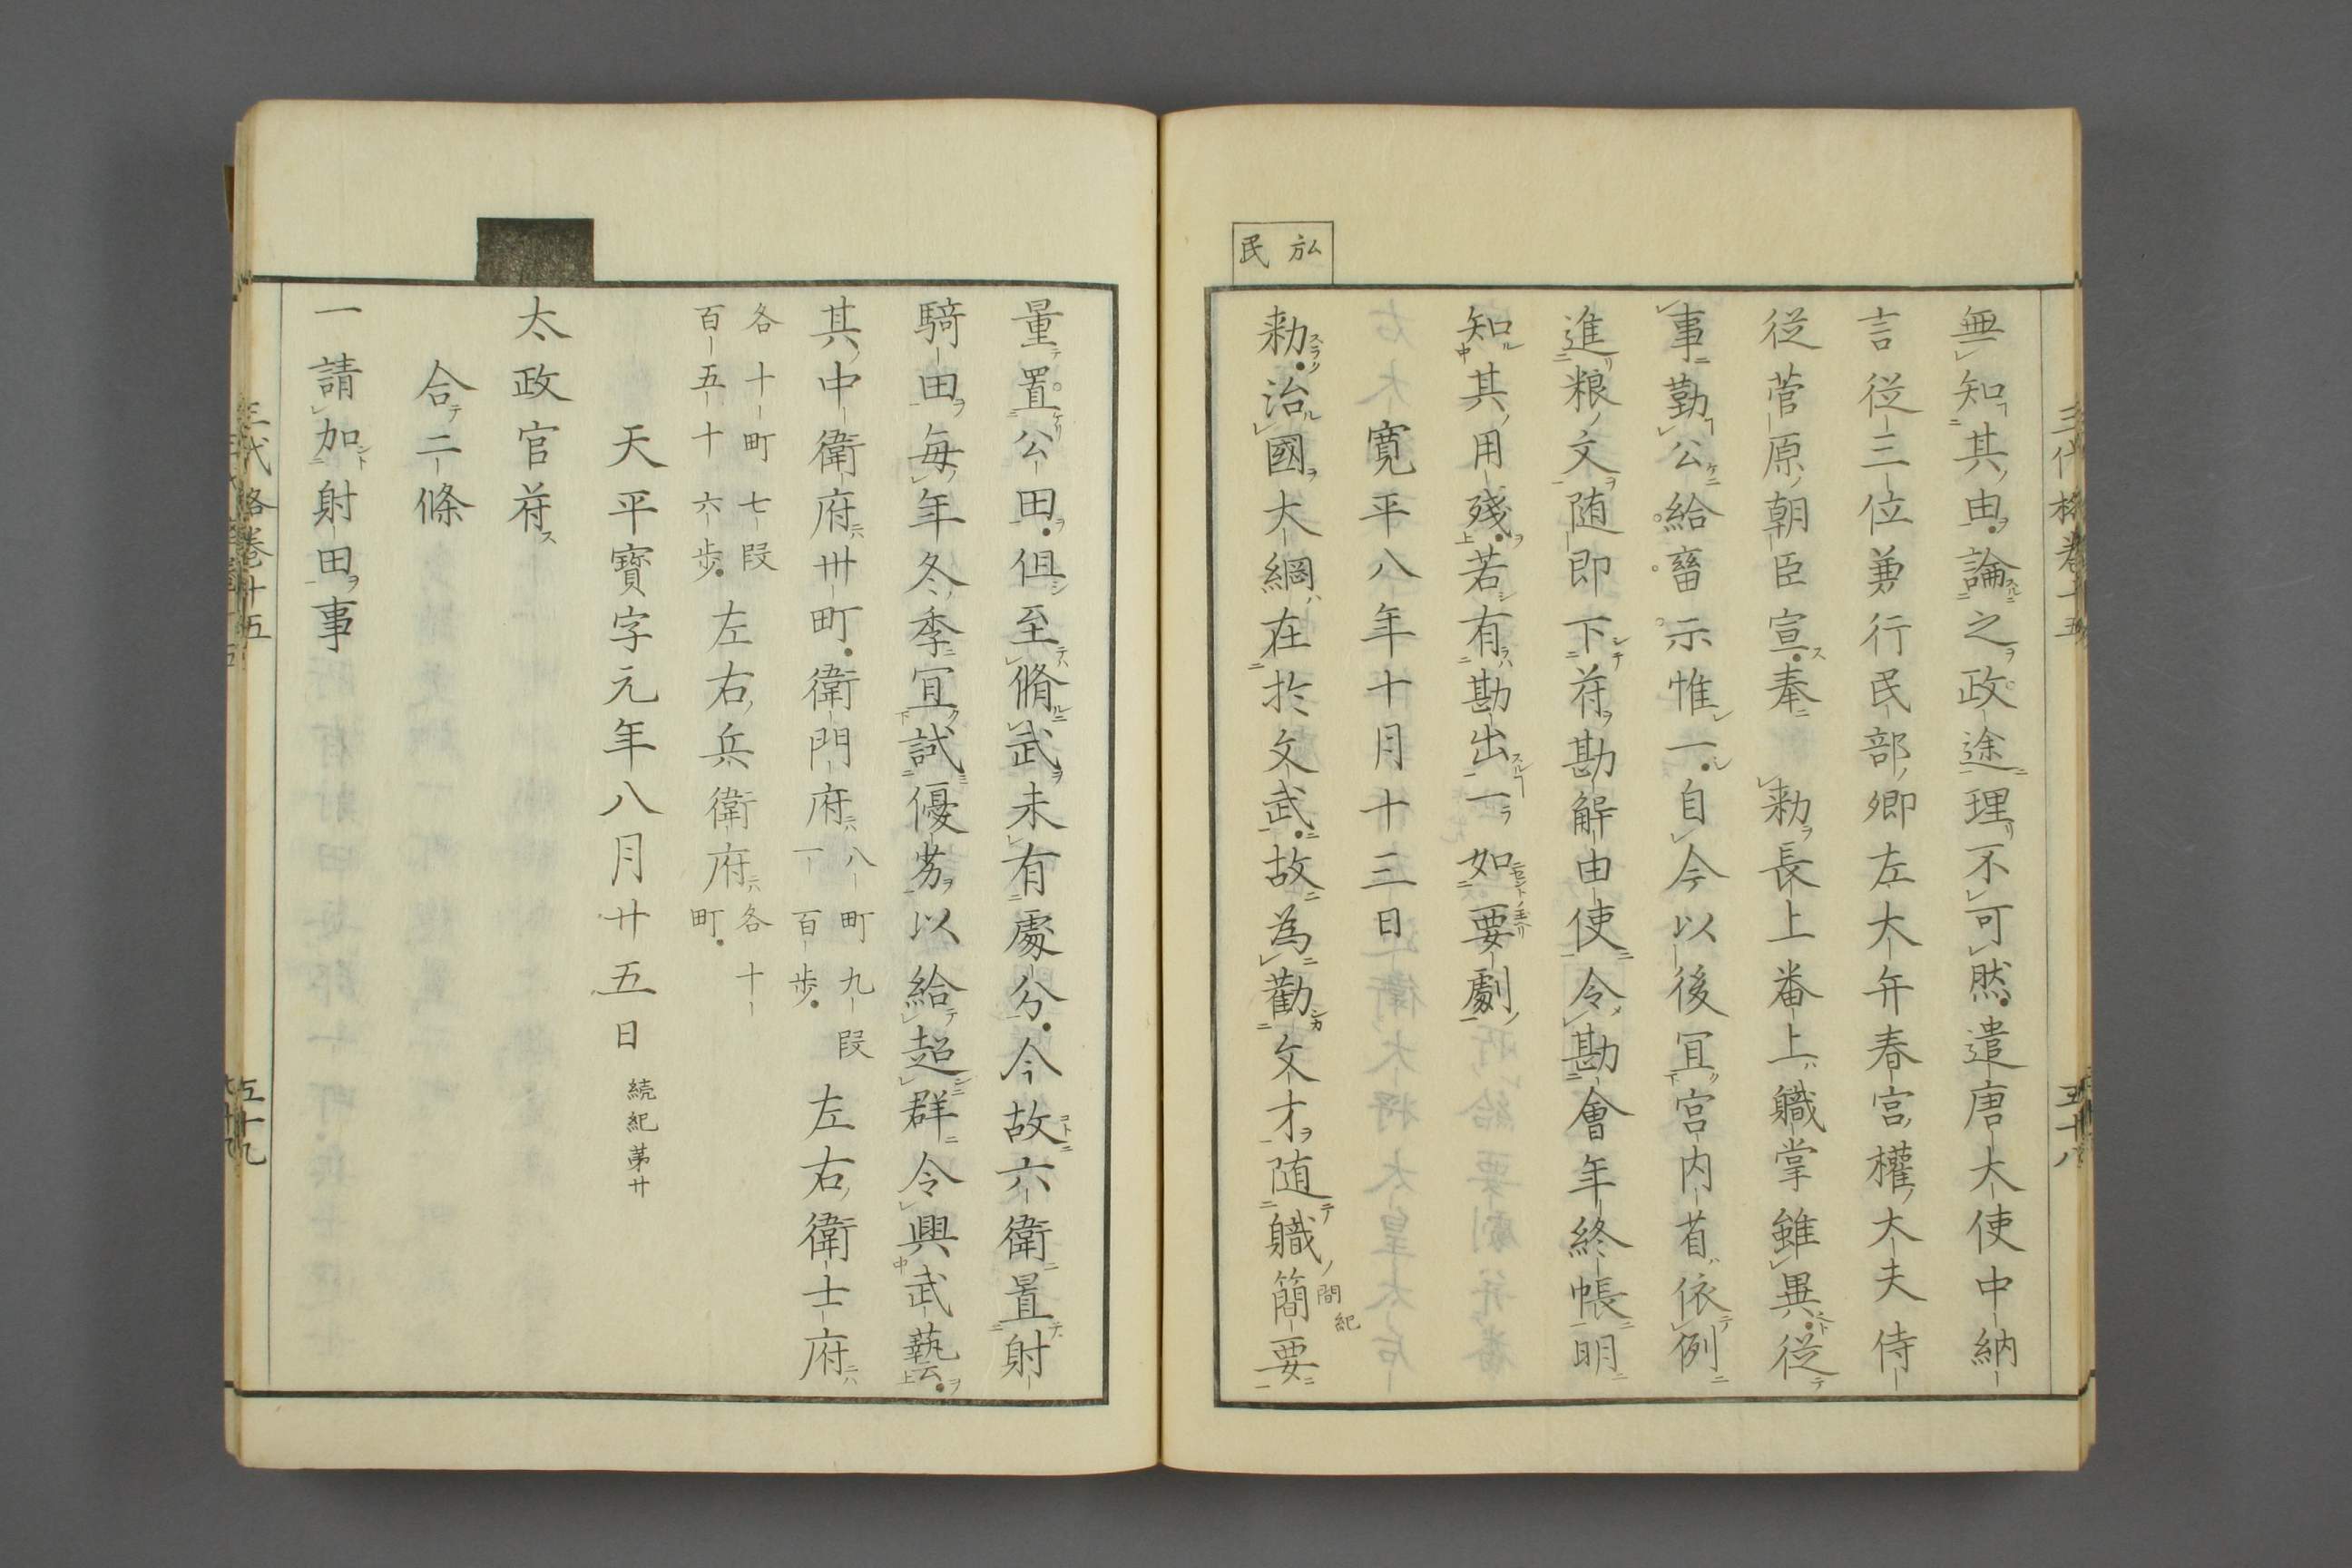 三代格卷十五
五十八
無知其由論之政途理不可然遣唐大使中納
言從三位兼行民部卿左大弁春宮權大夫侍
從菅原朝臣宣奉　勅長上番上職掌雖異從
事勤公給畜示惟一自今以後冝宮内省依例
進粮文随即下苻勘解由使令勘會年終帳明
知其用殘若有勘出一如要劇
寛平八年十月十三日
弘民
勅治國大綱在於文武故為勸文才随職簡要
間紀
量置公田但至脩武未有處分今故六衛置射
騎田毎年冬季冝試優劣以給超群令興武藝
其中衛府卅町衛門府八町九段一百歩左右衛士府
各十町七段百五十六歩左右兵衛府各十町
天平寶字元年八月廿五日 続紀苐廿
太政官苻
合二條
一請加射田事
三代格卷十五
五十九